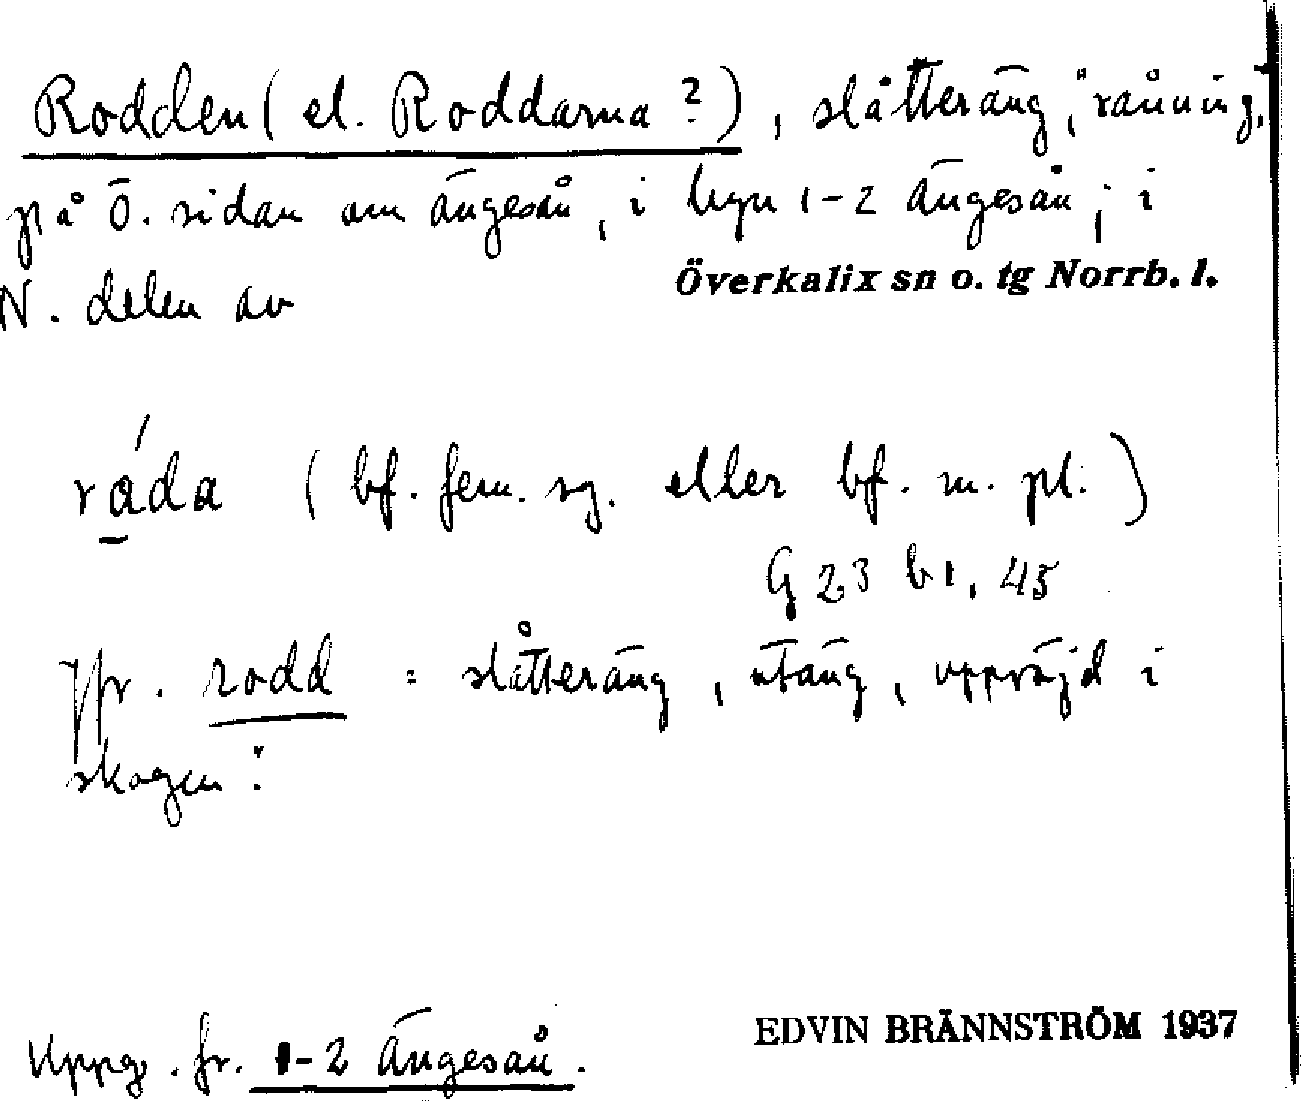 Rodden (el. Roddarna?), slåtteräng, "rånning,"
på ö. sidan om Ängesån, i byn 1-2 Ängesån; i
Överkalix sn o. tg Norrb. l.
N. delen av
råda (bf. fem. sg. eller bf. m. pl.)
G 23 b1, 45
Jfr. rodd = slåtteräng, utäng, uppröjd i
skogen:
EDVIN BRÄNNSTRÖM 1937
Uppg. fr. 1-2 Ängesån.